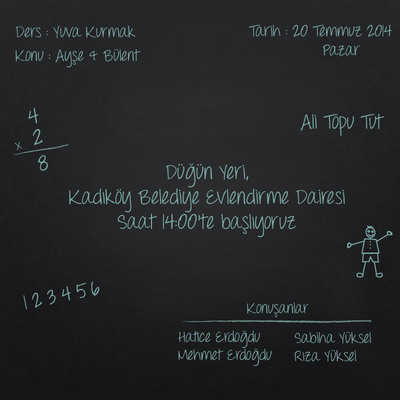 Ders : Yuva Kurmak
Tarih : 20 Temmuz 2014
Konu : Ayşe & Bülent
Pazar
4
x 2
8
Ali Topu Tut
Düğün Yeri,
Kadıköy Belediye Evlendirme Dairesi
Saat 14:00'te başlıyoruz
1 2 3 4 5 6
Konuşanlar
Hatice Erdoğdu
Sabiha Yüksel
Mehmet Erdoğdu
Rıza Yüksel